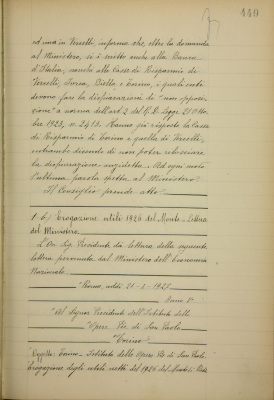 149
ed una in Vercelli, informa che, oltre la domanda
al Ministero, si è scritto anche alla Banca
d'Italia, nonché alla Cassa di Risparmio di
Vercelli, Ivrea, Biella e Torino, i quali enti
devono fare la dichiarazione di "non opposi-
zione" a norma dell'art. 2 del R. D. Legge 21 Otto-
bre 1923, n. 2413. Hanno già risposto la Cassa
di Risparmio di Torino e quella di Vercelli,
entrambe dicendo di non poter rilasciare
la dichiarazione anzidetta. Ad ogni modo
l'ultima parola spetta al Ministero.
Il Consiglio prende atto.
1-b) Erogazione utili 1926 del Monte - Lettera
del Ministero
L'On. Sig. Presidente dà lettura della seguente
lettera pervenuta dal Ministero dell'Economia
Nazionale:
"Roma, addì 21-3-1927
Anno V°
"Al Signor Presidente dell'Istituto delle
"Opere Pie di San Paolo
"Torino"
"Oggetto: Torino - Istituto delle Opere Pie di San Paolo
Erogazione degli utili netti del 1926 del Monte di Pietà